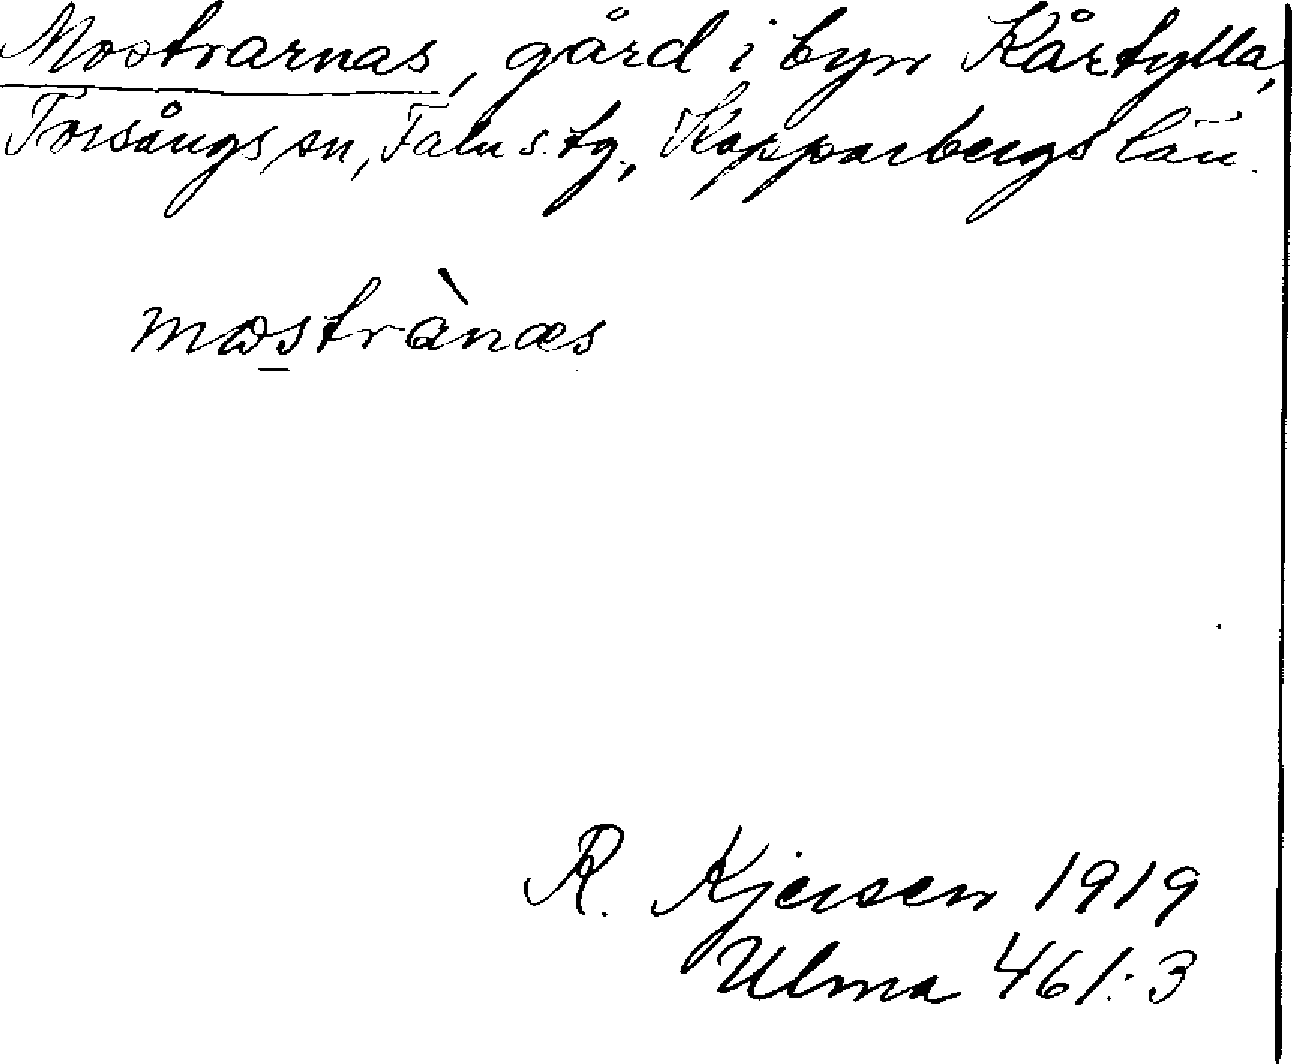 Mostrarnas, gård i byn Kårtylla,
Torsångs sn, Falu s. tg., Kopparbergs län.
mostrànæs
R. Kjersen 1919
Ulma 461:3